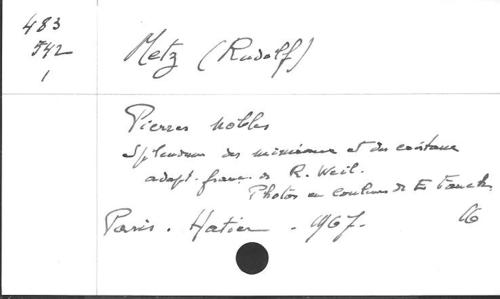 483
542
1
Metz (Rudolf)
Pierres nobles
Splendeur des minéraux et des cristaux
adapt. franç. de R. Weil.
Photos en couleurs de E. Fanck
Paris. Hatier. 1967.